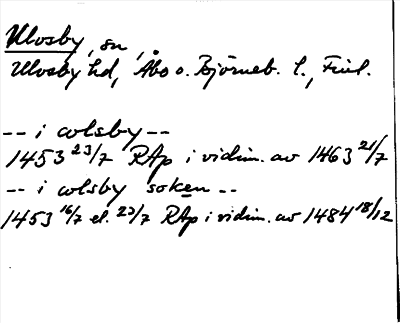 Ulvsby, sn,
Ulvsby hd, Åbo o. Björneb. l., Finl.
-- i wlsby --
1453 23/7 RAp i vidim. av 1463 21/7
-- i wlsby soken --
1453 16/7 el. 23/7 RAp i vidim. av 1484 18/12